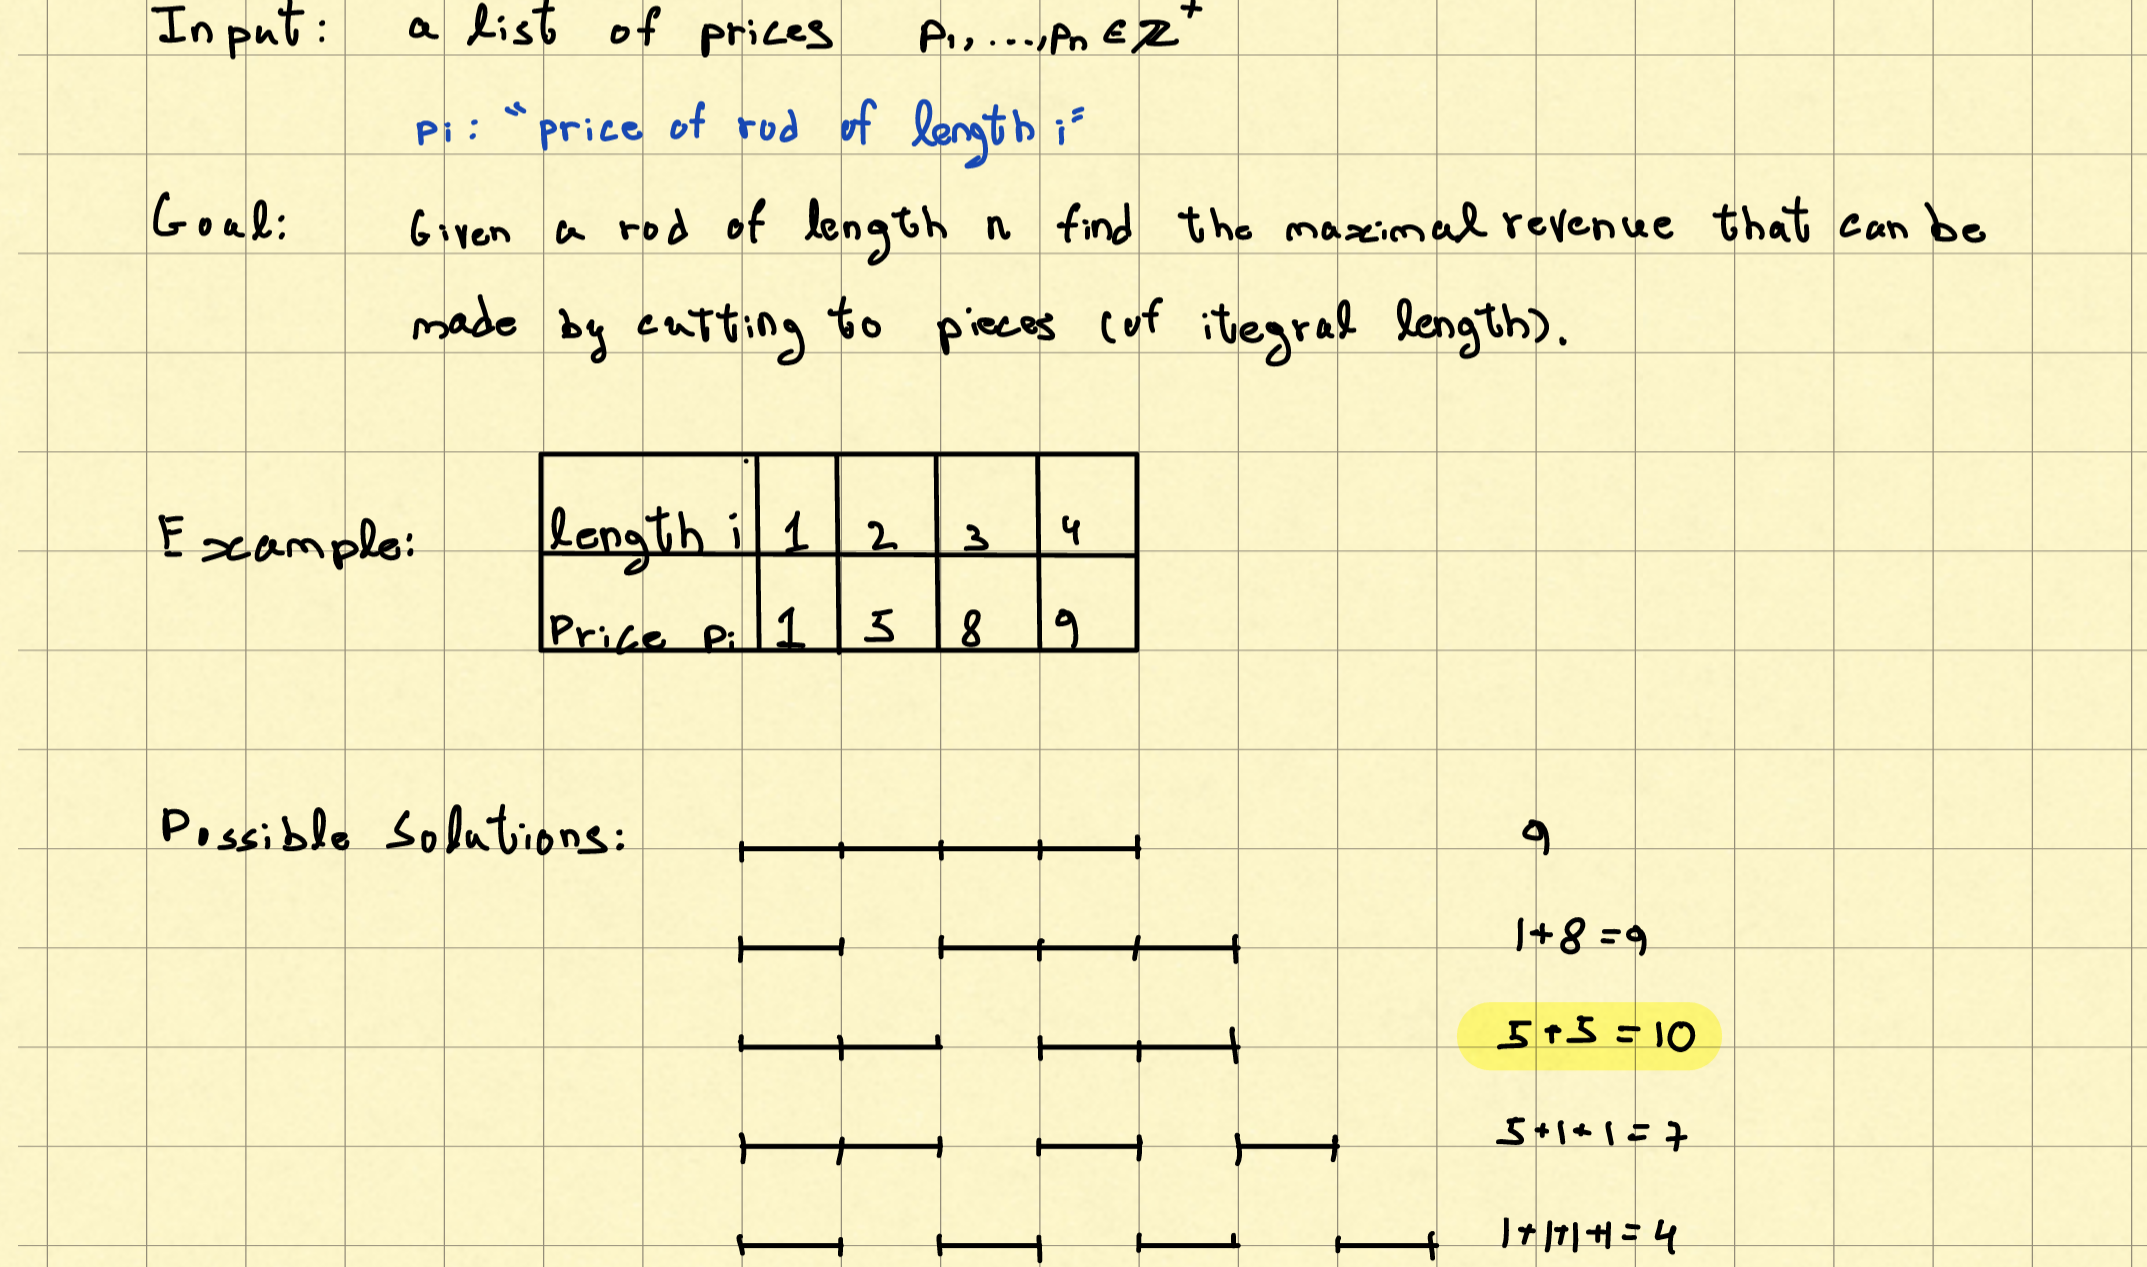 Input: a list of prices p1,...,pn ∈ Z+
pi: "price of rod of length i"
Goal: Given a rod of length n find the maximal revenue that can be
made by cutting to pieces (of itegral length).
Example:
length i 1 2 3 4
Price pi 1 5 8 9
Possible Solutions: 9
1+8=9
5+5=10
5+1+1=7
1+1+1+1=4